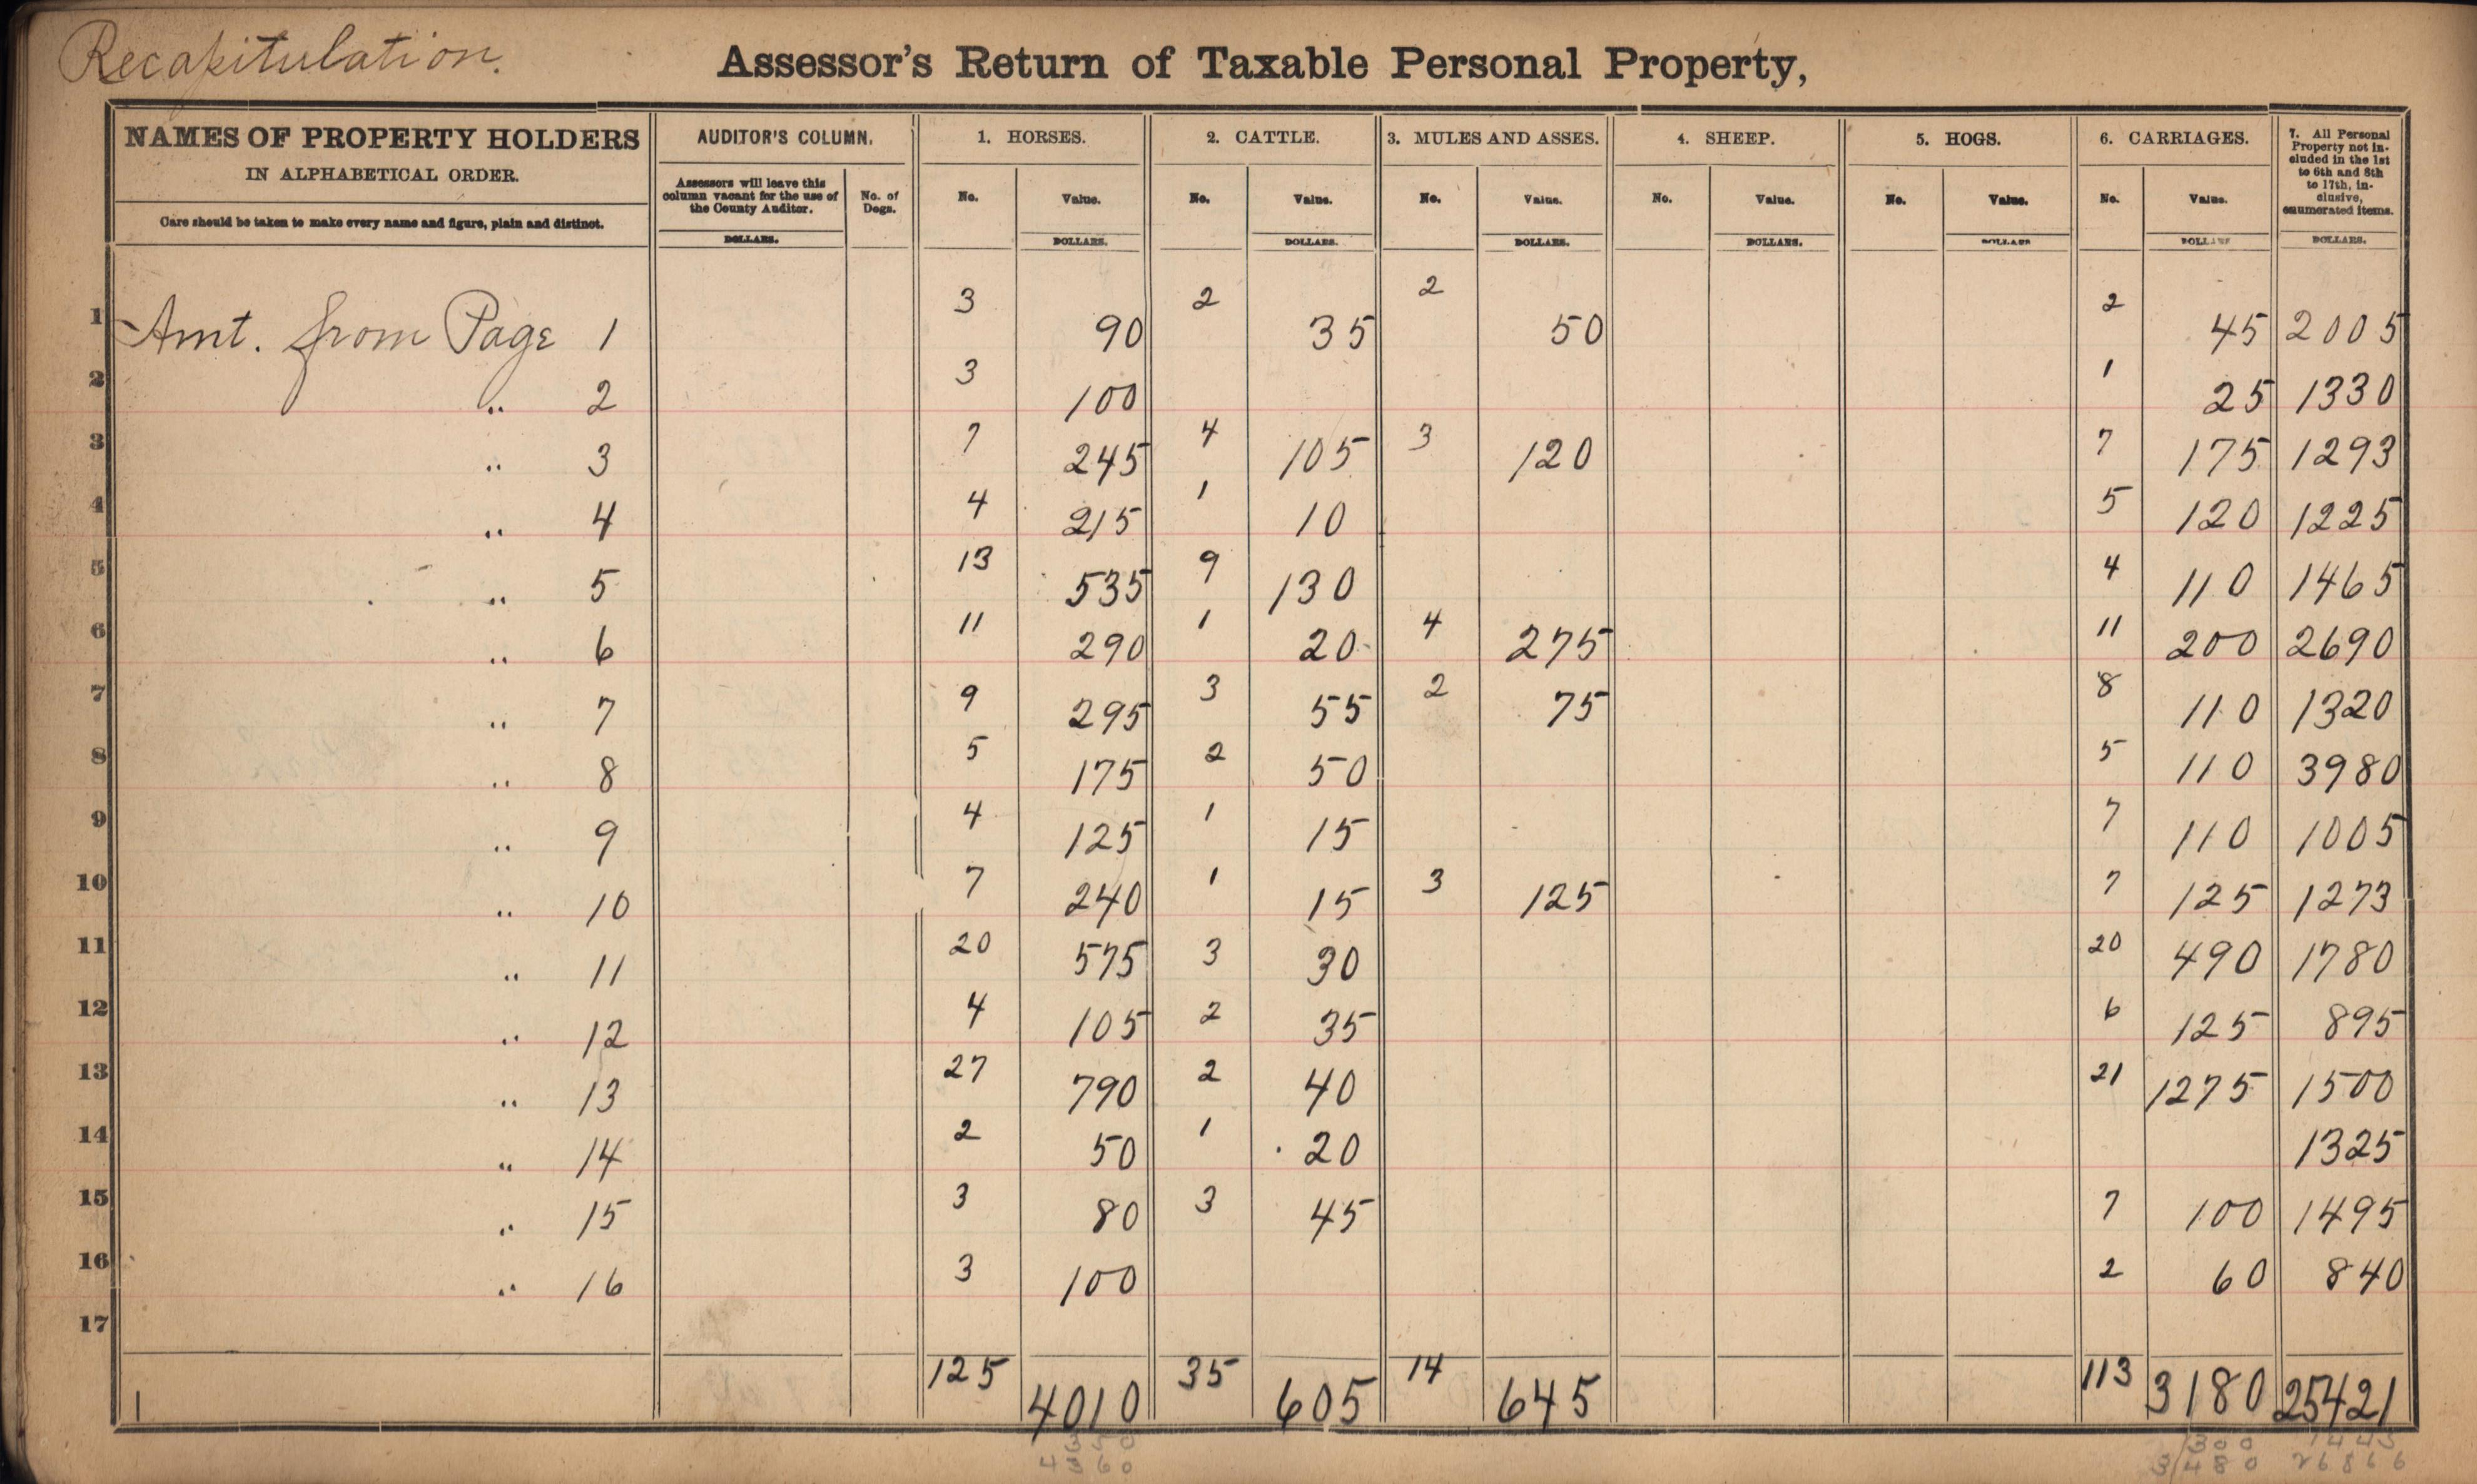 Recapitulation.
Assessor's Return of Taxable Personal Property,
NAMES OF PROPERTY HOLDERS
IN ALPHABETICAL ORDER.
Care should be taken to make every name and figure, plain and distinct.
AUDITOR'S COLUMN.
Assessors will leave this
column vacant for the use of
the County Auditor.
DOLLARS.
No. of
Dogs.
1. HORSES.
No. Value.
DOLLARS.
2. CATTLE.
No. Value.
DOLLARS.
3. MULES AND ASSES.
No. Value.
DOLLARS.
4. SHEEP.
No. Value.
DOLLARS.
5. HOGS.
No. Value.
DOLLARS
6. CARRIAGES.
No. Value.
DOLLARS
7. All Personal
Property not in-
cluded in the 1st
to 6th and 8th
to 17th, in-
clusive,
enumerated items.
DOLLARS.
1 Amt. from Page 1 3 90 2 35 2 50 2 45 2005
2 " 2 3 100 1 25 1330
3 " 3 7 245 4 105 3 120 7 175 1293
4 " 4 4 215 1 10 5 120 1225
5 " 5 13 535 9 130 4 110 1465
6 " 6 11 290 1 20 4 275 11 200 2690
7 " 7 9 295 3 55 2 75 8 110 1320
8 " 8 5 175 2 50 5 110 3980
9 " 9 4 125 1 15 7 110 1005
10 " 10 7 240 1 15 3 125 7 125 1273
11 " 11 20 575 3 30 20 490 1780
12 " 12 4 105 2 35 6 125 895
13 " 13 27 790 2 40 21 1275 1500
14 " 14 2 50 1 20 1325
15 " 15 3 80 3 45 7 100 1495
16 " 16 3 100 2 60 840
17
125 4010 35 605 14 645 113 3180 25421
350 300 1445
4360 3480 26866